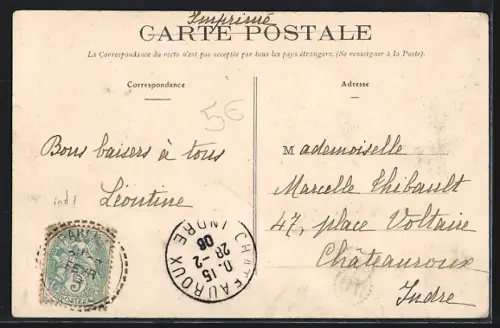 Imprimé
CARTE POSTALE
La Correspondance du recto n'est pas acceptée par tous les pays étrangers. (Se renseigner à la Poste).
Correspondance
Adresse
5€
Bons baisers à tous
Léontine
Mademoiselle
Marcelle Thibault
47, place Voltaire
Châteauroux
Indre
CHATEAUROUX
INDRE
0-15
28-2
06